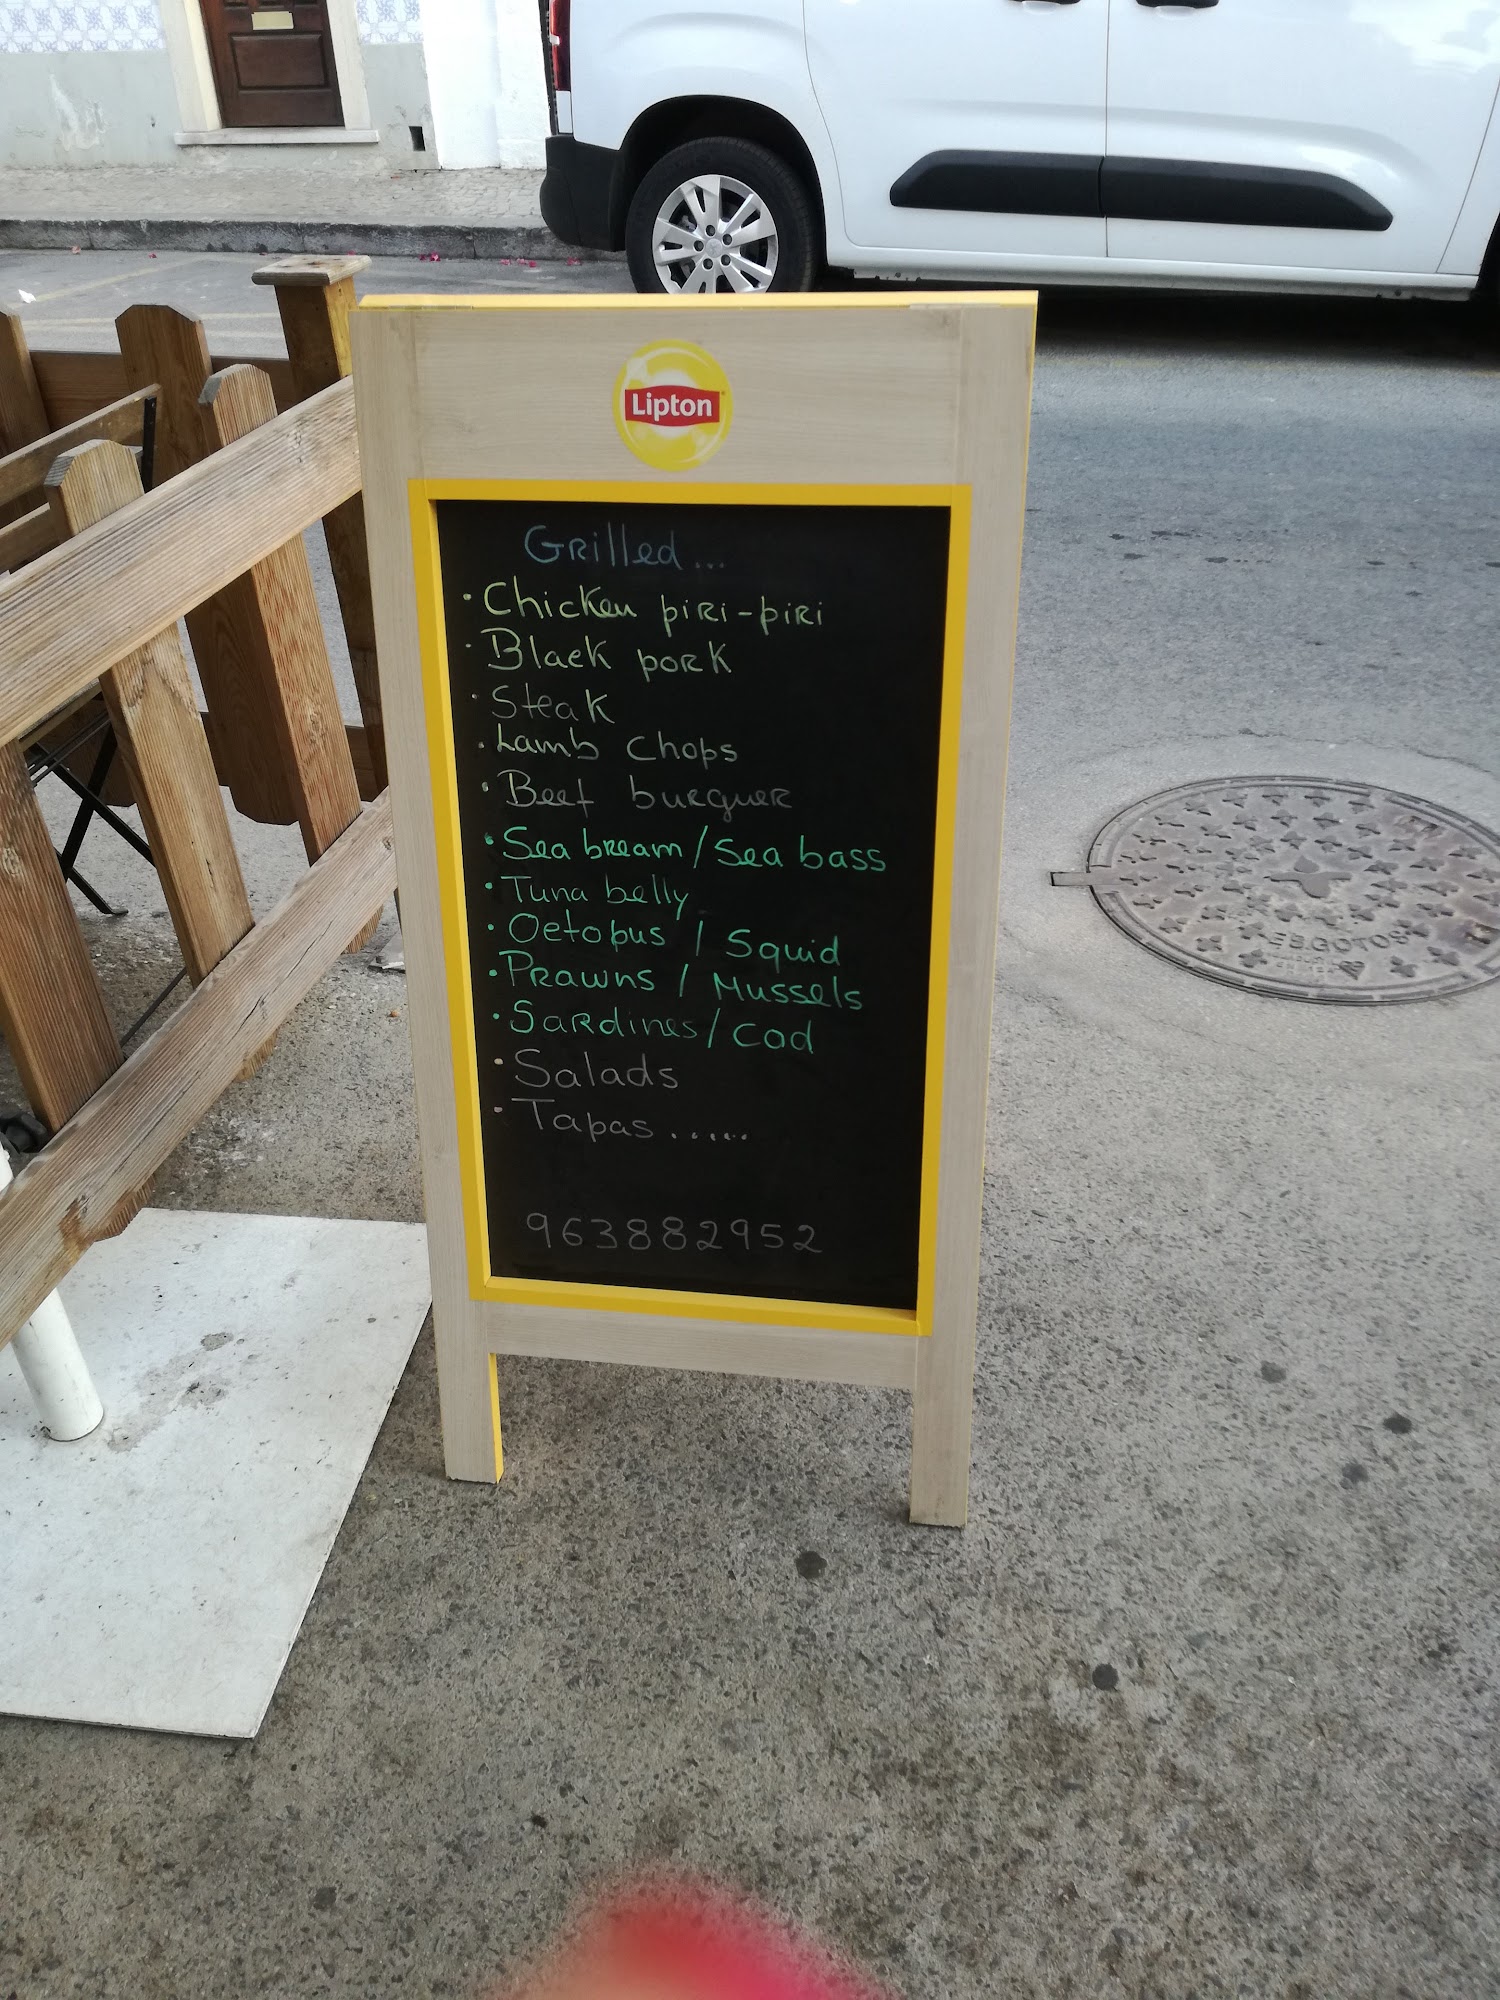 Lipton
Grilled...
• Chicken piri-piri
• Black pork
• Steak
• Lamb chops
• Beef burguer
• Sea bream/Sea bass
• Tuna belly
• Octopus / Squid
• Prawns / Mussels
• Sardines/Cod
• Salads
• Tapas......
963882952
ESGOTOS